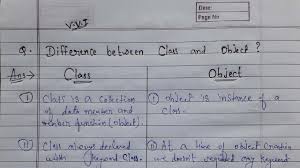 Date:
Page No
V.V.I
Q. Difference between Class and Object ?
Ans → Class Object
(I) Class is a collection (I) Object is instance of a
of data member and class.
member function (object).
(II) Class always declared (II) At a time of object creation
with keyword class. we don't required any keyword